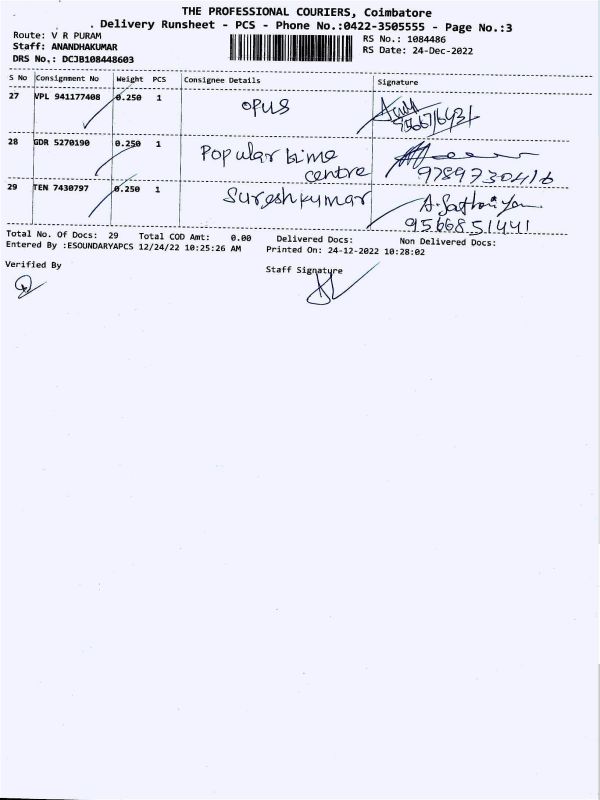 THE PROFESSIONAL COURIERS, Coimbatore
. Delivery Runsheet - PCS - Phone No.:0422-3505555 - Page No.:3
Route: V R PURAM
RS No.: 1084486
Staff: ANANDHAKUMAR
RS Date: 24-Dec-2022
DRS No.: DCJB108448603
S No Consignment No Weight PCS Consignee Details Signature
27 VPL 941177408 0.250 1 opus
28 GDR 5270190 0.250 1 Popular time
centre 9789730416
29 TEN 7430797 0.250 1 Sureshkumar
9566851441
Total No. Of Docs: 29 Total COD Amt: 0.00 Delivered Docs: Non Delivered Docs:
Entered By :ESOUNDARYAPCS 12/24/22 10:25:26 AM Printed On: 24-12-2022 10:28:02
Verified By
Staff Signature